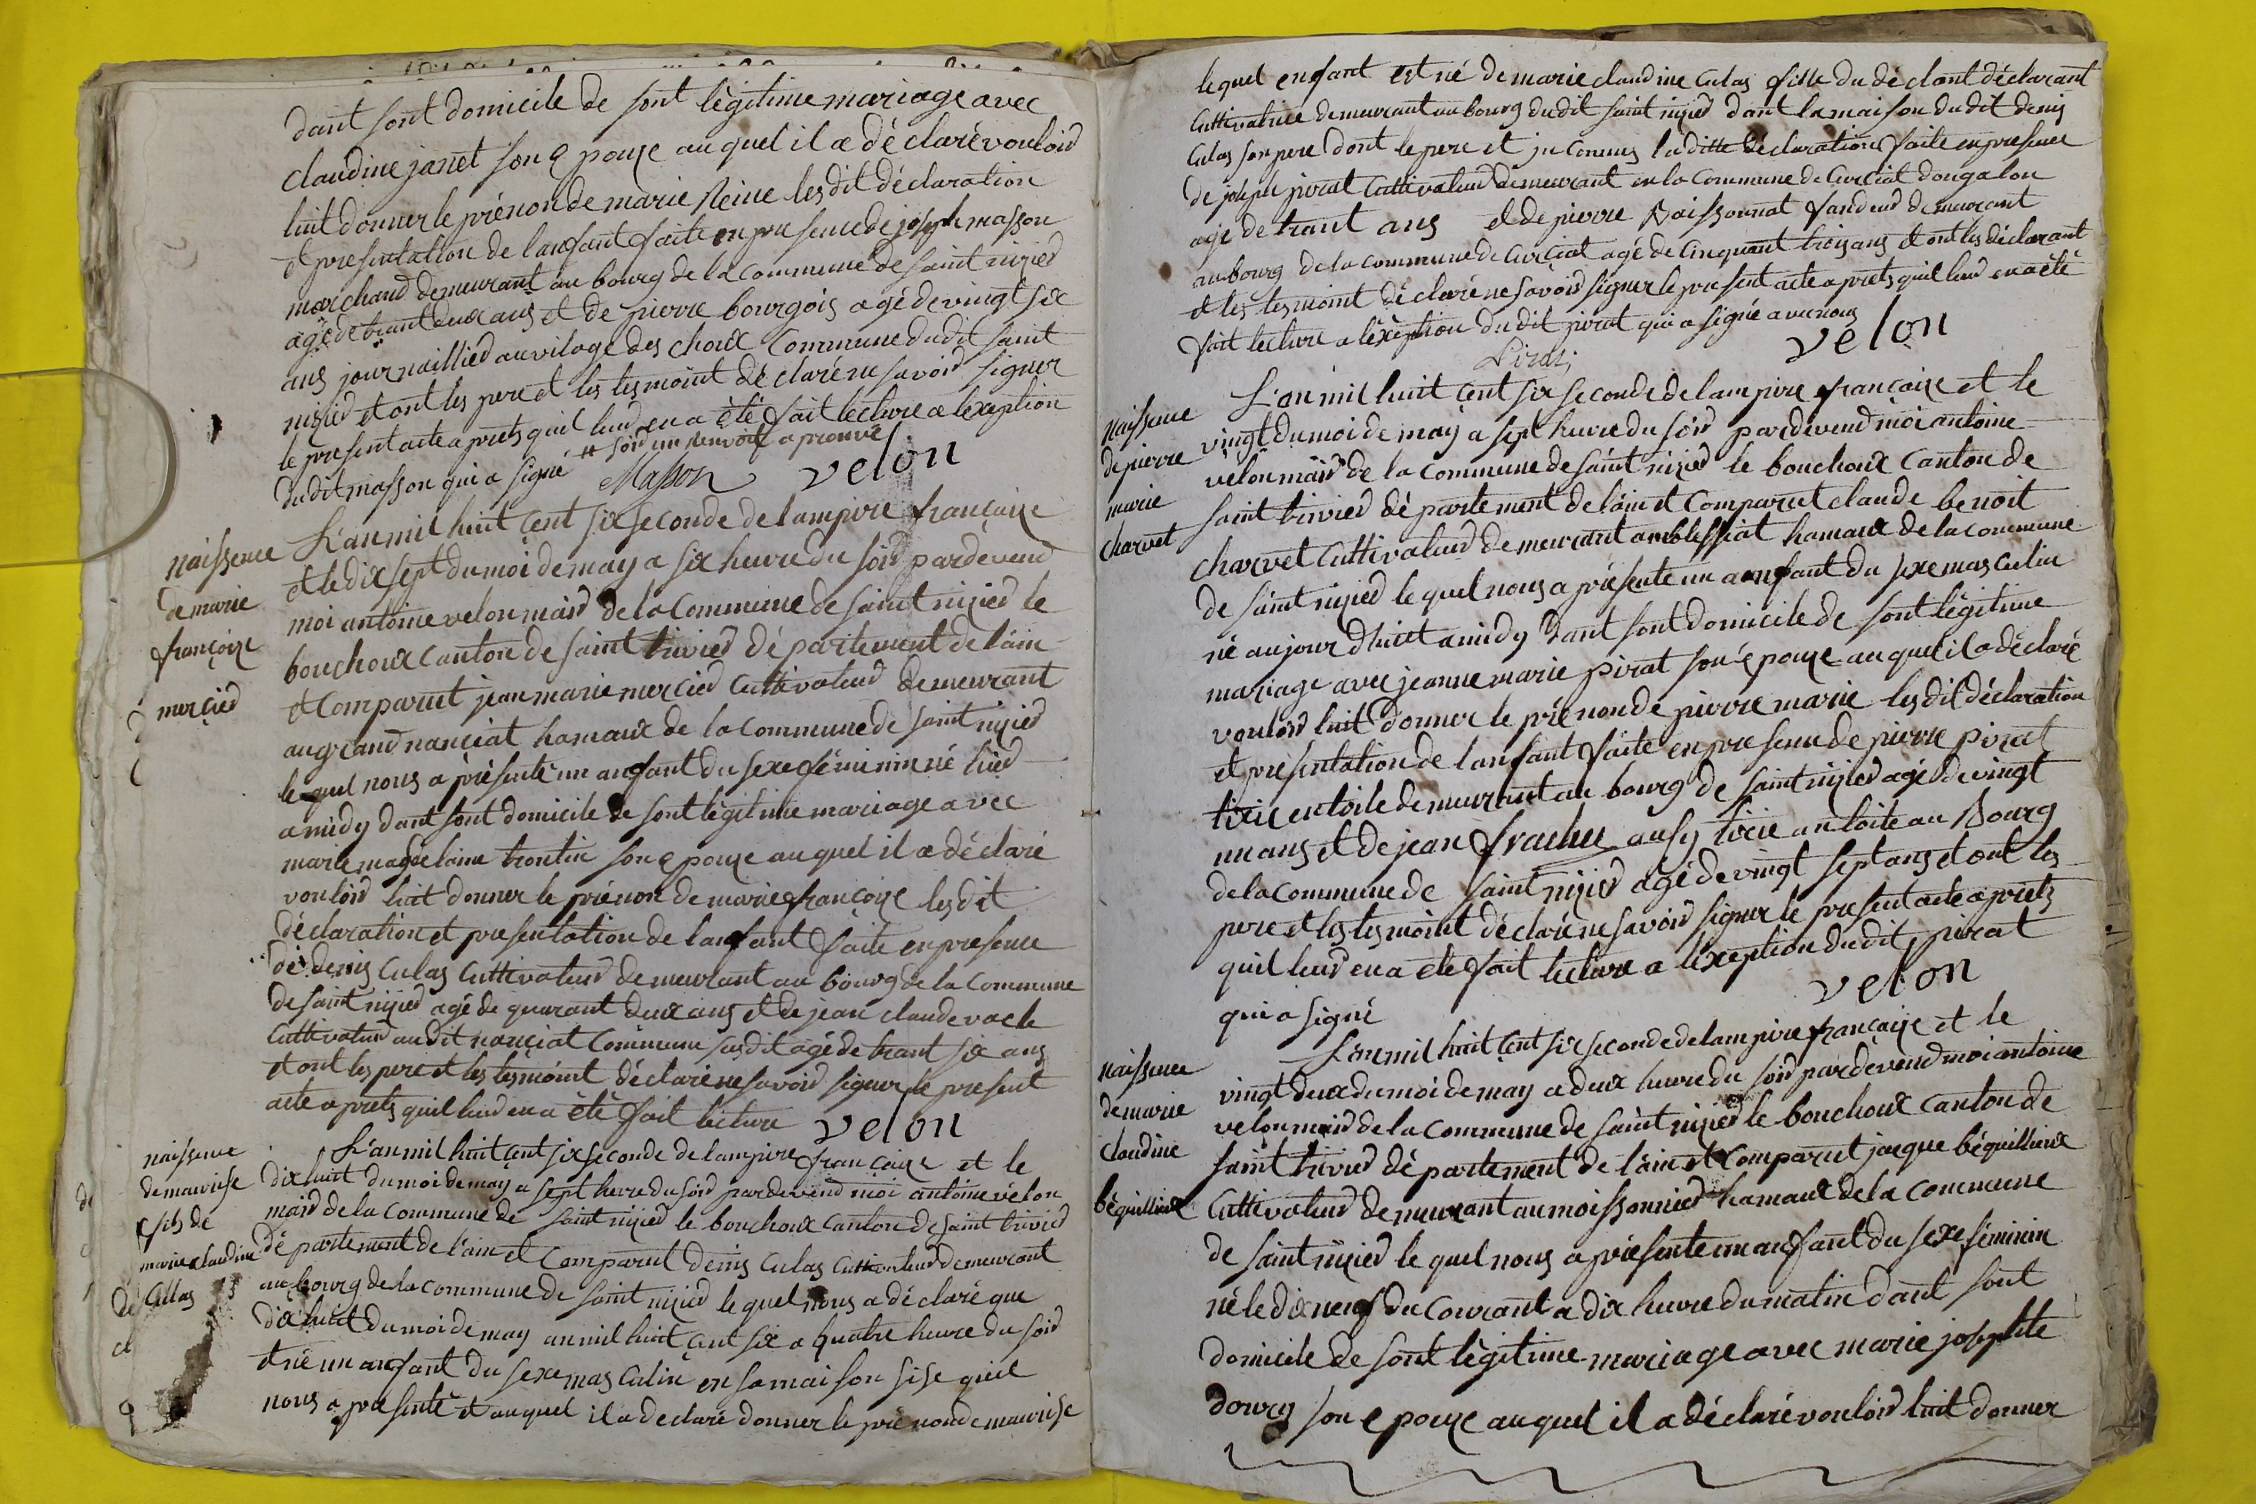 dant sont domicile de sont légitime mariage avec
claudine janet son epouze au quel il a déclaré vouloir
luit donner le prénon de marie Reine lesdit déclaration
et presentation de lanfant faite en presence de joseph masson
marchand demeurant au bourg de la commune de saint nizier
agé de trant deux ans et de pierre bourgois agé de vingt six
ans journaillier au vilage des choux commune dudit saint
nizier et ont les pere et les tesmoint déclaré ne savoir signer
le present acte aprets quil leur en a été fait lecture a lexeption
dudit masson qui a signé
Masson velon
naissence
de marie
françoize
mercier
L'an mil huit çent six seconde de lampire françaize
et le dix sept du moi de may a six heure du soir pardevend
moi antoine velon mair de la commune de saint nizier le
bouchoux canton de saint trivier département de lain
et comparut jean marie mercier cultivateur demeurant
au grand nançiat hamaux de la commune de saint nizier
le quel nous a présenté un anfant du sexe féminin né hier
a midy dant sont domicile de sont légitime mariage avec
marie magdelaine trontin son epouze au quel il a déclaré
vouloir luit donner le prénon de marie françoize lesdit
déclaration et presentation de lanfant faite en presence
de denis Culas Cultivateur demeurant au bourg de la commune
de saint nizier agé de quarant deux ans et de jean claude vacle
Cultivateur audit nançiat commune susdit agé de trant six ans
et ont les pere et les tesmoint déclaré ne savoir signer le present
acte aprets quil leur en a été fait lecture velon
naissence
de maurise
fils de
marie claudine
Culas
L'an mil huit çent six seconde de lampire françaize et le
dix huit du moi de may a sept heure du soir pardevend moi antoine vélon
mair de la commune de saint nizier le bouchoux canton de saint trivier
département de l'ain et comparut denis Culas Cultivateur demeurant
au bourg de la commune de saint nizier le quel nous a déclaré que
dix huit du moi de may an mil huit çent six a quatre heure du soir
et né un anfant du sexe masculin en sa maison sise quil
nous a présenté et auquel il a declaré donner le prénon de maurise
lequel enfant est né de marie claudine Culas fille du dé clant déclarant
Cultivatrice demeurant au bourg dudit saint nizier dant la maison dudit denis
Culas son pere dont le pere et in connus la ditte déclaration faite en presence
de joseph pirat cultivateur demeurant en la commune de Curciat dongalon
agé de trant ans et de pierre Boissonnat demeurant
au bourg de la commune de Curciat agé de Cinquant trois ans et ont les déclarant
et les tesmoint déclaré ne savoir signer le present acte aprets quil leur en a été
fait lecture a léxéption dudit pirat qui a signé avec nous
velon
Pirat
naissence
de pierre
marie
charvet
L'an mil huit çent six seconde de lampire françaize et le
vingt du moi de may a sept heure du soir pardevend moi antoine
vélon mair de la commune de saint nizier le bouchoux canton de
saint trivier département de lain et comparut claude benoit
charvet cultivateur demeurant hamaux de la commune
de saint nizier le quel nous a présenté un anfant du sexe masculin
né aujourdhiut a midy dant sont domicile de sont légitime
mariage avec jeanne marie pirat son épouze au quel il a déclaré
vouloir luit donner le prénon de pierre marie lesdit déclaration
et presentation de lanfant faite en presence de pierre pirat
tixie en toile demeurant au bourg de saint nizier agé de vingt
un ans et de jean frachu ausy tixie an toile au Bourg
de la commune de saint nizier agé de vingt sept ans et ont les
pere et les tesmoint déclaré ne savoir signer le present acte aprets
quil leur en a été fait lecture a l'éxeption dudit pirat
qui a signé
velon
naissence
de marie
claudine
béquillieux
L'an mil huit çent six seconde de lampire françaize et le
vingt deux du moi de may a deux heure du soir pardevend moi antoine
velon mair de la commune de saint nizier le bouchoux canton de
saint trivier département de lain et comparut jacque béquillieux
Cultivateur demeurant au moissonnier hamaux de la commune
de saint nizier le quel nous a présenté un anfant du sexe féminin
né le dix neuf du courant a dix heure du matin dant sont
domicile de sont légitime mariage avec marie josephte
son epouze au quel il a déclaré vouloir luit donner